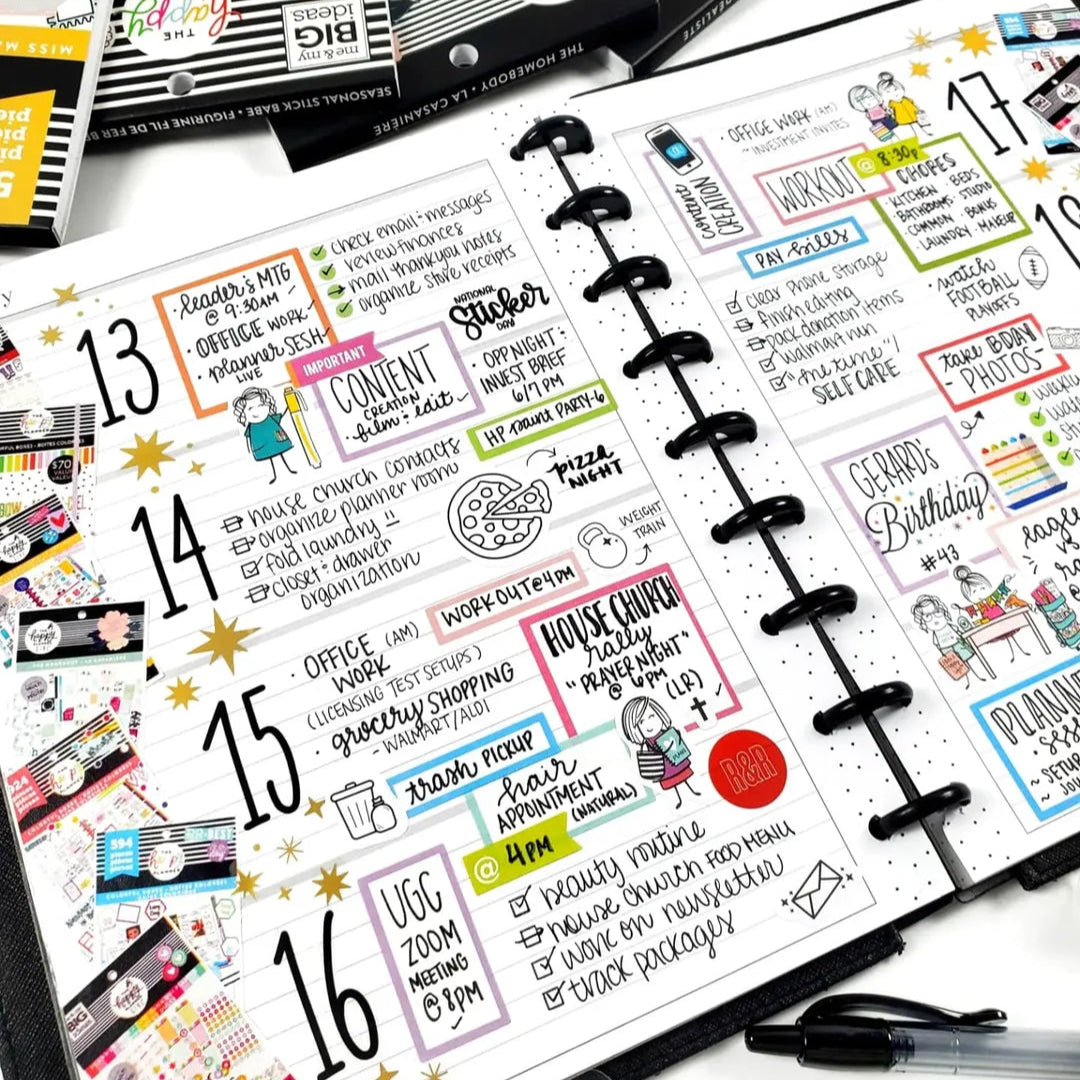 MISS MA
THE
happy
me & my
BIG
ideas
SEASONAL STICK BABE • FIGURINE FIL DE FER
THE HOMEBODY • LA CASANIÈRE
RÉALISTE
13
leader's MTG
@ 9:30AM
OFFICE WORK
planner SESH
LIVE
check email + messages
review finances
mail thank you notes
organize store receipts
NATIONAL
Sticker
DAY
IMPORTANT
CONTENT
CREATION
film + edit
OPP NIGHT +
INVEST BRIEF
6/7 PM
HP paint PARTY-6
14
house church contacts
organize planner room
fold laundry
closet + drawer
organization
pizza
NIGHT
WEIGHT
TRAIN
WORKOUT @ 4PM
15
OFFICE (AM)
WORK
(LICENSING TEST SETUPS)
grocery SHOPPING
- WALMART/ALDI
HOUSE CHURCH
rally
"PRAYER NIGHT"
@ 6PM
(LR)
trash PICKUP
hair
APPOINTMENT
(NATURAL)
@ 4PM
R&R
16
UGC
ZOOM
MEETING
@ 8PM
beauty routine
house church FOOD MENU
work on newsletter
track packages
17
content
CREATION
OFFICE WORK (AM)
~ INVESTMENT INVITES
WORKOUT
@ 8:30p
CHORES
KITCHEN · BEDS
BATHROOMS · STUDIO
COMMON · BONUS
· LAUNDRY · MAKEUP
PAY bills
clear phone storage
finish editing
pack donation items
walmart run
"me time"/
SELF CARE
watch
FOOTBALL
PLAYOFFS
take BDAY
- PHOTOS -
GERARD'S
Birthday
#43
eagle
vs
PLANN
sess
~ SETUP
~ JOU
$70
VALUE
594
BIG